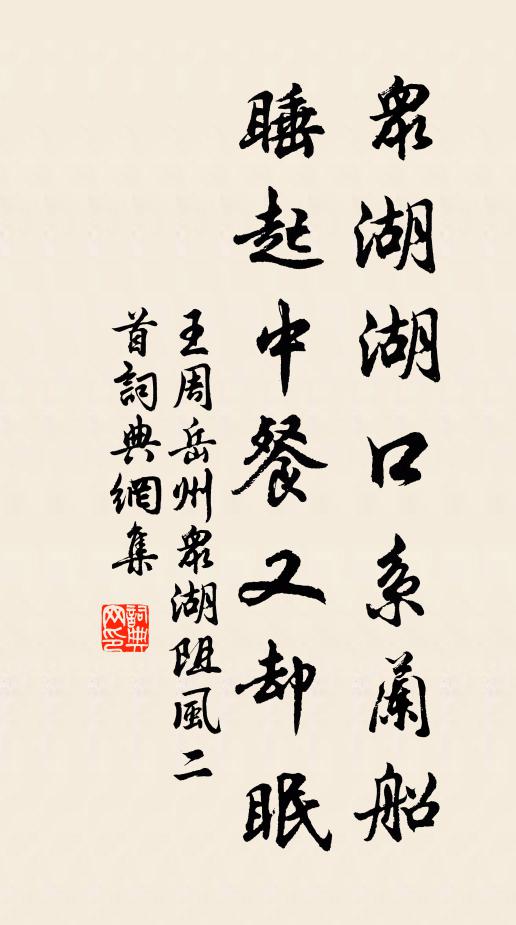 眾湖湖口系蘭船
睡起中餐又却眠
王周岳州眾湖阻風二
首詞典網集
詞典
网印